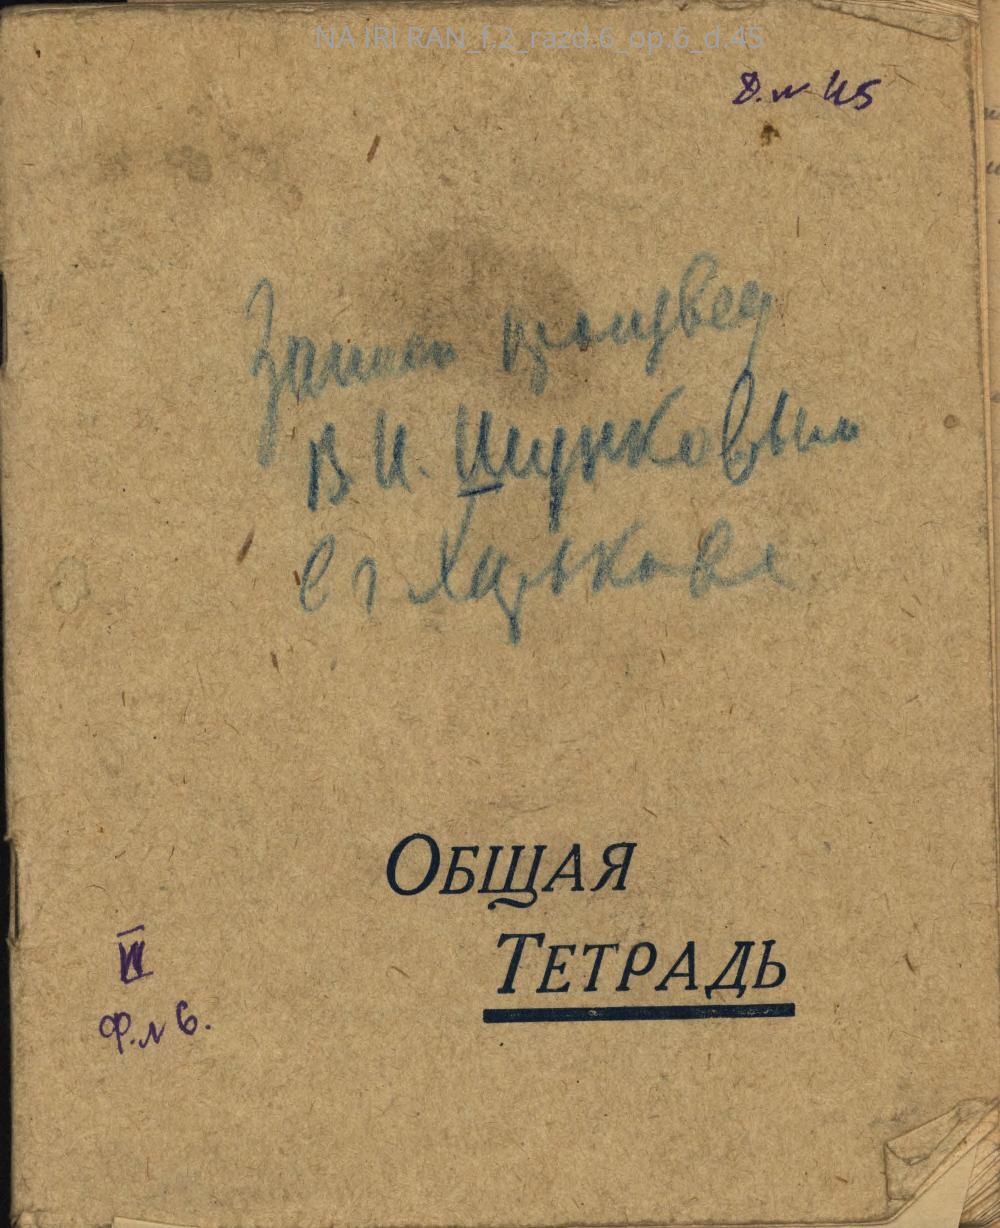 NA IRI RAN_f.2_razd.6_op.6_d.45
Д. № 45
Записи произвед
В И. Шунковым
в г Харькове
ОБЩАЯ
ТЕТРАДЬ
VI
Ф. № 6.